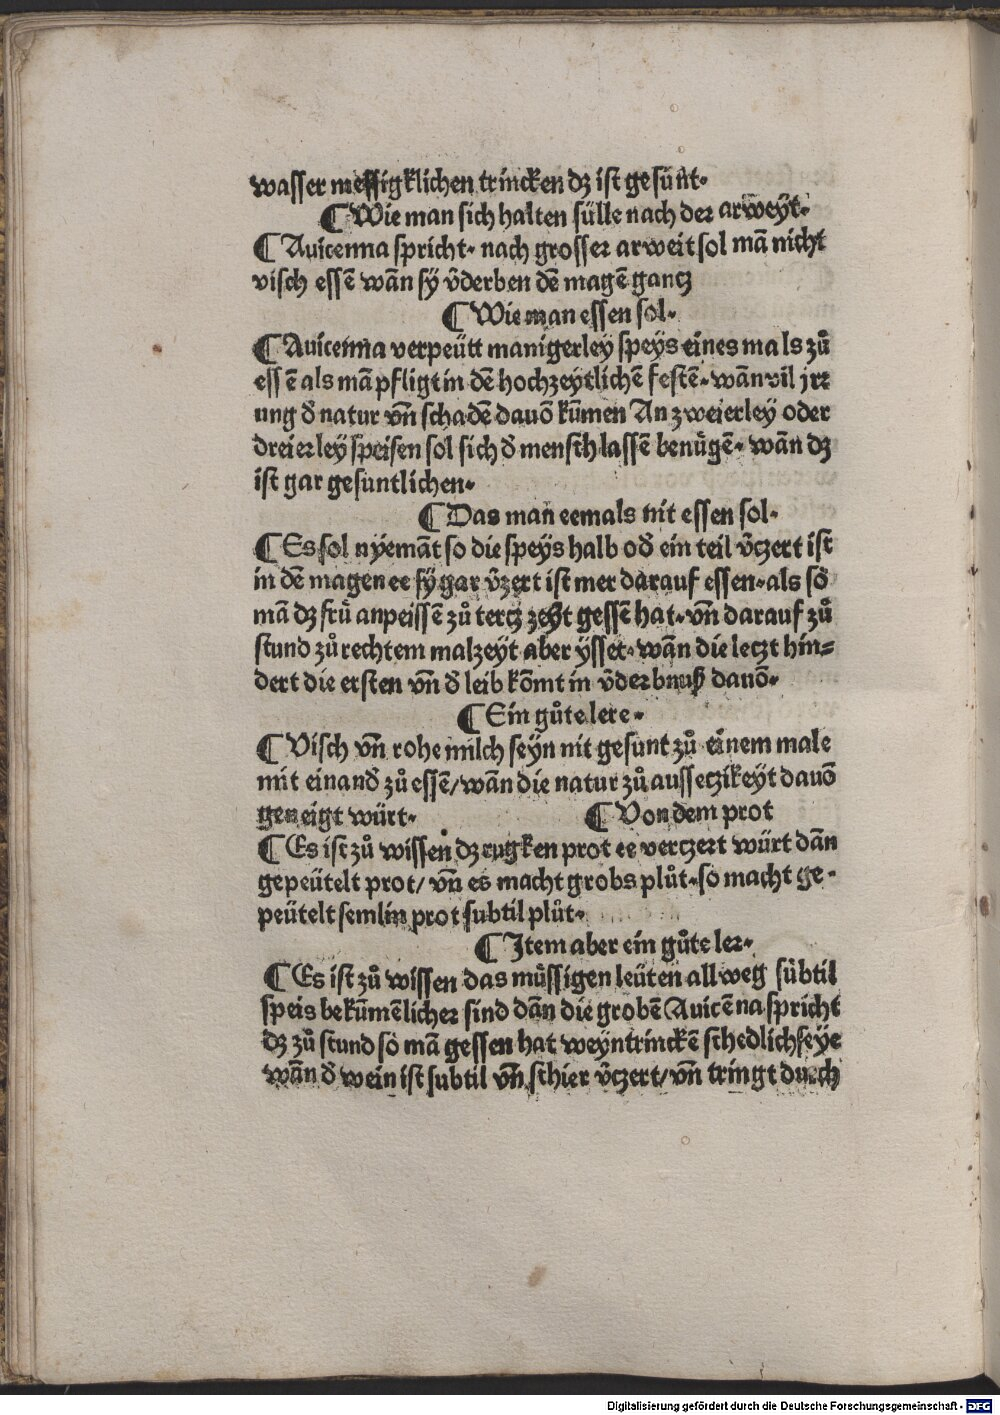 wasser messigklichen trincken dz ist gesunt·
¶ Wie man sich halten sülle nach der arweyt·
¶ Auicenna spricht· nach grosser arweit sol mā nicht
visch essē wān sy v̄derben dē magē gantz
¶ Wie man essen sol·
¶ Auicenna verpeütt manigerley speys eines mals zů
essē als mā pfligt in dē hochzeytlichē festē· wān vil jrr
ung d̄ natur vn̄ schadē dauō kūmen An zweierley oder
dreierley speisen sol sich d̄ mensch lassē benügē· wān dz
ist gar gesuntlichen·
¶ Das man eemals nit essen sol·
¶ Es sol nyemāt so die speys halb od̄ ein teil v̄czert ist
in dē magen ee sy gar v̄zert ist mer darauf essen· als so
mā dz frü anpeissē zů tercz zeyt gessē hat· vn̄ darauf zů
stund zů rechtem malzeyt aber ysset· wān die leczt hin=
dert die ersten vn̄ d̄ leib kōmt in v̄derbnuß dauō·
¶ Ein gůte lere·
¶ Visch vn̄ rohe milch seyn nit gesunt zů einem male
mit einand̄ zů essē/ wān die natur zů aussetzikeyt dauō
geneigt würt· ¶ Von dem prot
¶ Es ist zů wissen dz rugken prot ee verczert würt dān
gepeütelt prot/ vn̄ es macht grobs plůt· so macht ge·
peütelt semlin prot subtil plůt·
¶ Item aber ein gůte ler·
¶ Es ist zů wissen das müssigen leüten allweg subtil
speis bekūmēlicher sind dān die grobē Auicēna spricht
dz zů stund so mā gessen hat weyntrinckē schedlich seye
wān d̄ wein ist subtil vn̄ schier v̄czert/ vn̄ tringt durch
Digitalisierung gefördert durch die Deutsche Forschungsgemeinschaft - DFG